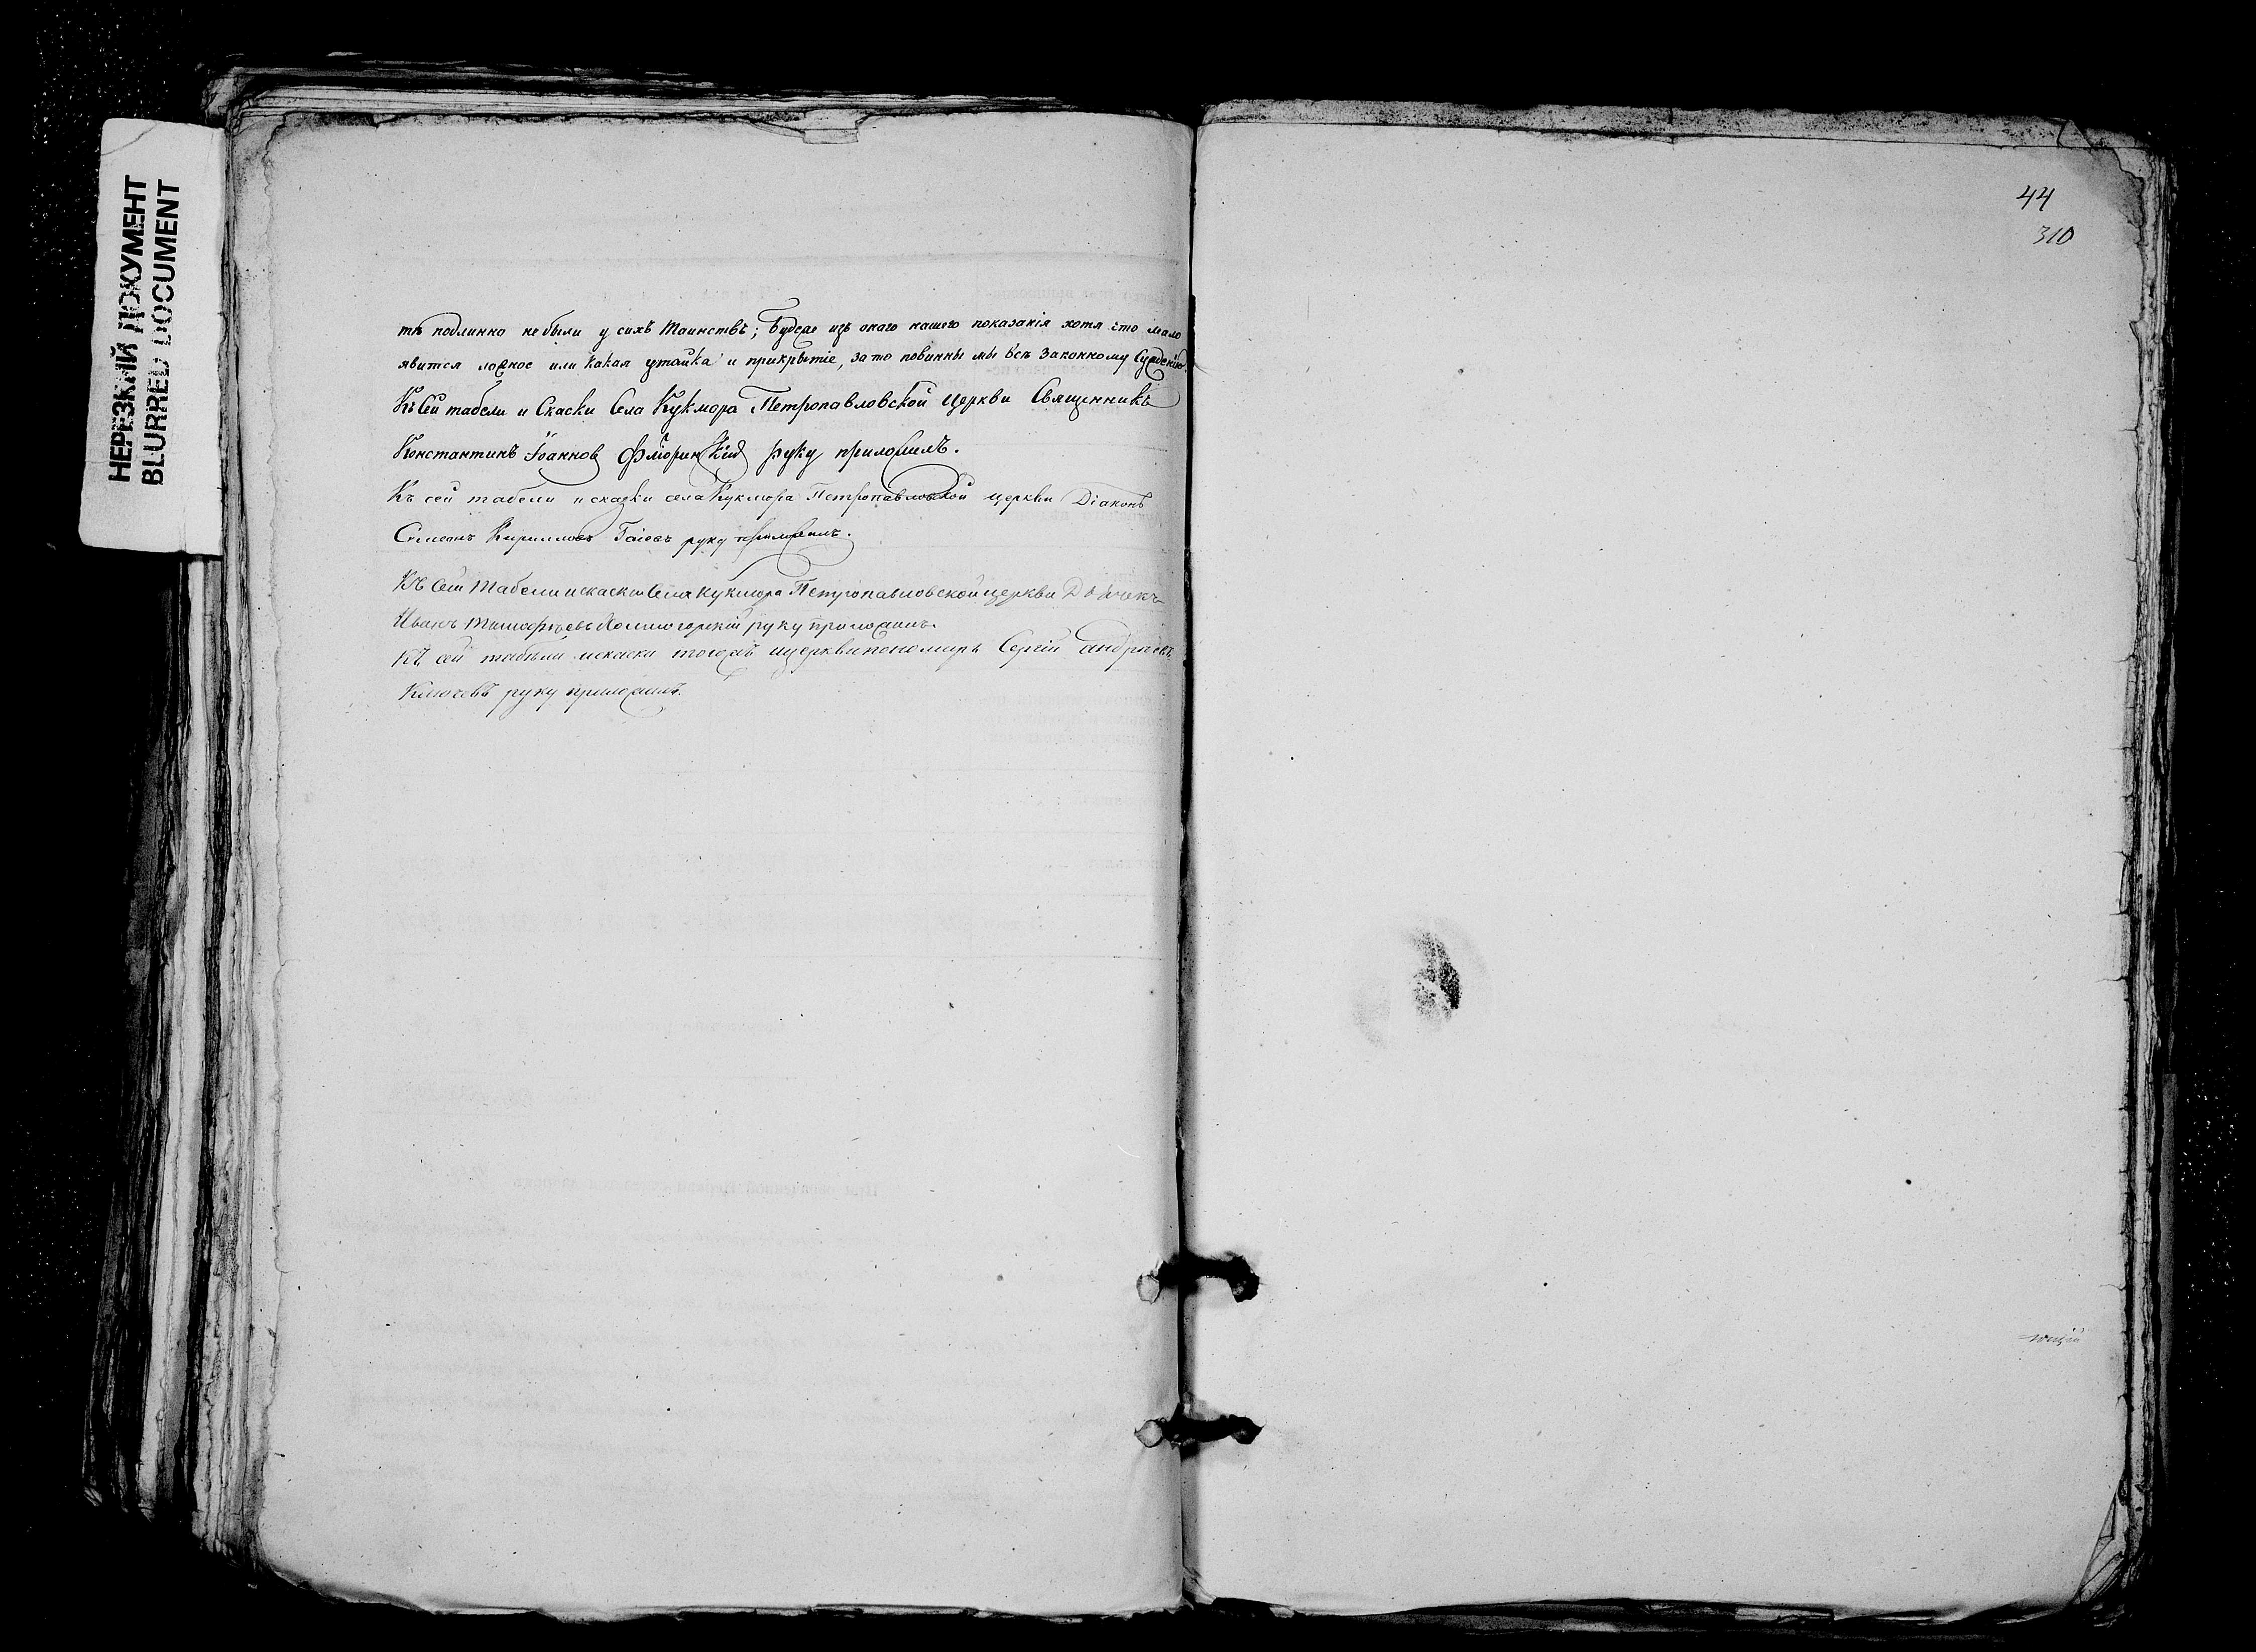 НЕРЕЗКИЙ ДОКУМЕНТ
BLURRED DOCUMENT
тѣ подлинно небыли у сихъ Таинствъ; Будеже изъ онаго нашего показанія хотя что мало
явится ложное или какая утайка и прикрытіе, зато повинны мы всѣ законному сужденію.
Къ сей табели и Скаски Села Кукмора Петропавловской церкви Священникъ
Константинъ Іоаннов руку приложилъ.
Къ сей табели и скаски села Кукмора Петропавловской церкви Діаконъ
Симеонъ Кирилловъ Гаіевъ руку приложилъ.
Къ Сей Табели и скаски Села Кукмора Петропавловской церкви Дьячекъ
Иванъ Тимофѣевъ Холмогорскій руку приложилъ.
Къ сей табѣли искаски тоежъ церкви пономарь Сергій андрѣевъ
Ключевъ руку приложилъ.
44
310